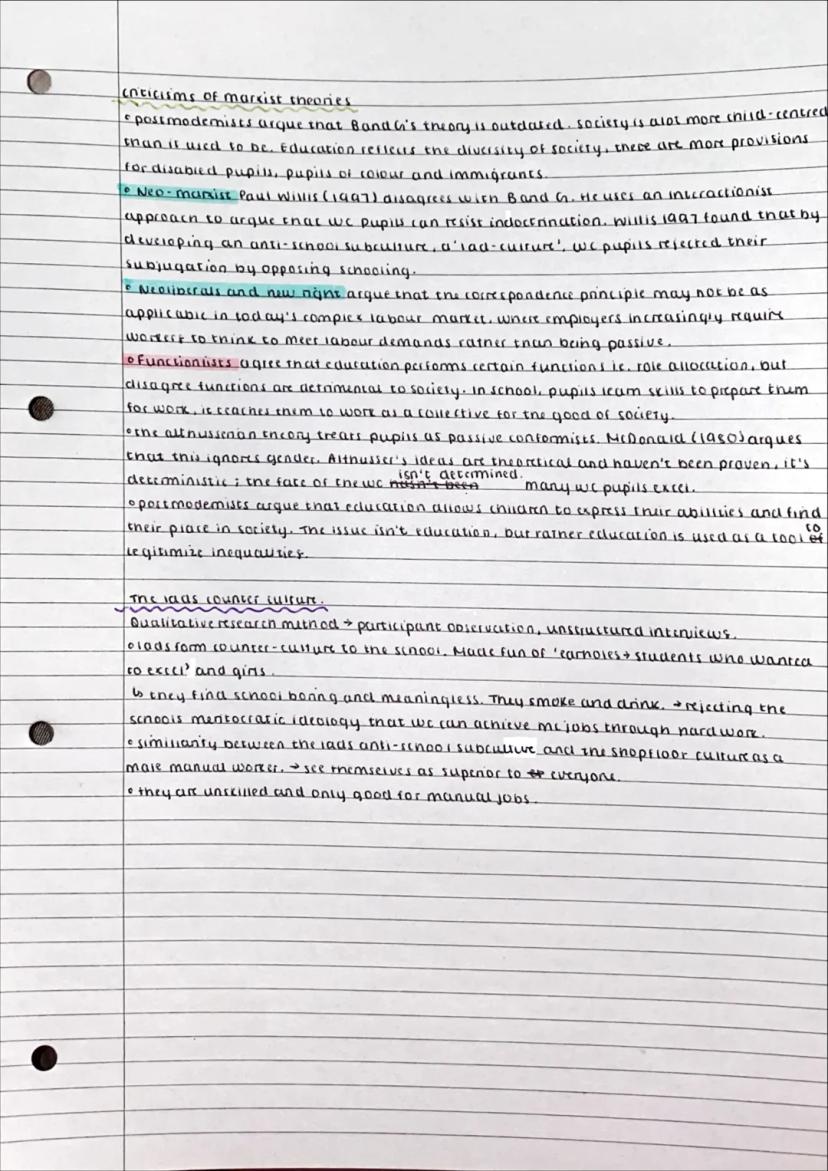 criticisms of marxist theories
• postmodernists argue that B and G's theory is outdated. Society is alot more child-centred
than it used to be. Education reflects the diversity of society, there are more provisions
for disabled pupils, pupils of colour and immigrants.
• Neo-marxist Paul Willis (1997) disagrees with B and G. He uses an interactionist
approach to argue that wc pupils can resist indoctrination. Willis 1997 found that by
developing an anti-school subculture, a 'lad-culture', wc pupils rejected their
subjugation by opposing schooling.
• Neoliberals and new right argue that the correspondence principle may not be as
applicable in today's complex labour market, where employers increasingly require
workers to think to meet labour demands rather than being passive.
• Functionlists agree that education performs certain functions i.e. role allocation, but
disagree functions are detrimental to society. In school, pupils learn skills to prepare them
for work, it teaches them to work as a collective for the good of society.
• the althusserian theory treats pupils as passive conformists. McDonald (1980) argues
that this ignores gender. Althusser's ideas are theoretical and haven't been proven, it's
deterministic ; the fate of the wc hasn't been isn't determined. many wc pupils excel.
• postmodernists argue that education allows children to express their abilities and find
their place in society. The issue isn't education, but rather education is used as a tool of to
legitimize inequalities.
The lads counter culture.
Qualitative research method → participant observation, unstructured interviews.
• lads form counter-culture to the school. Made fun of 'earholes → students who wanted
to excel' and girls.
↳ they find school boring and meaningless. They smoke and drink. → rejecting the
schools meritocratic ideology that wc can achieve mc jobs through hard work.
• similiarity between the lads anti-school subculture and the shopfloor culture as a
male manual worker. → see themselves as superior to everyone.
• they are unskilled and only good for manual jobs.